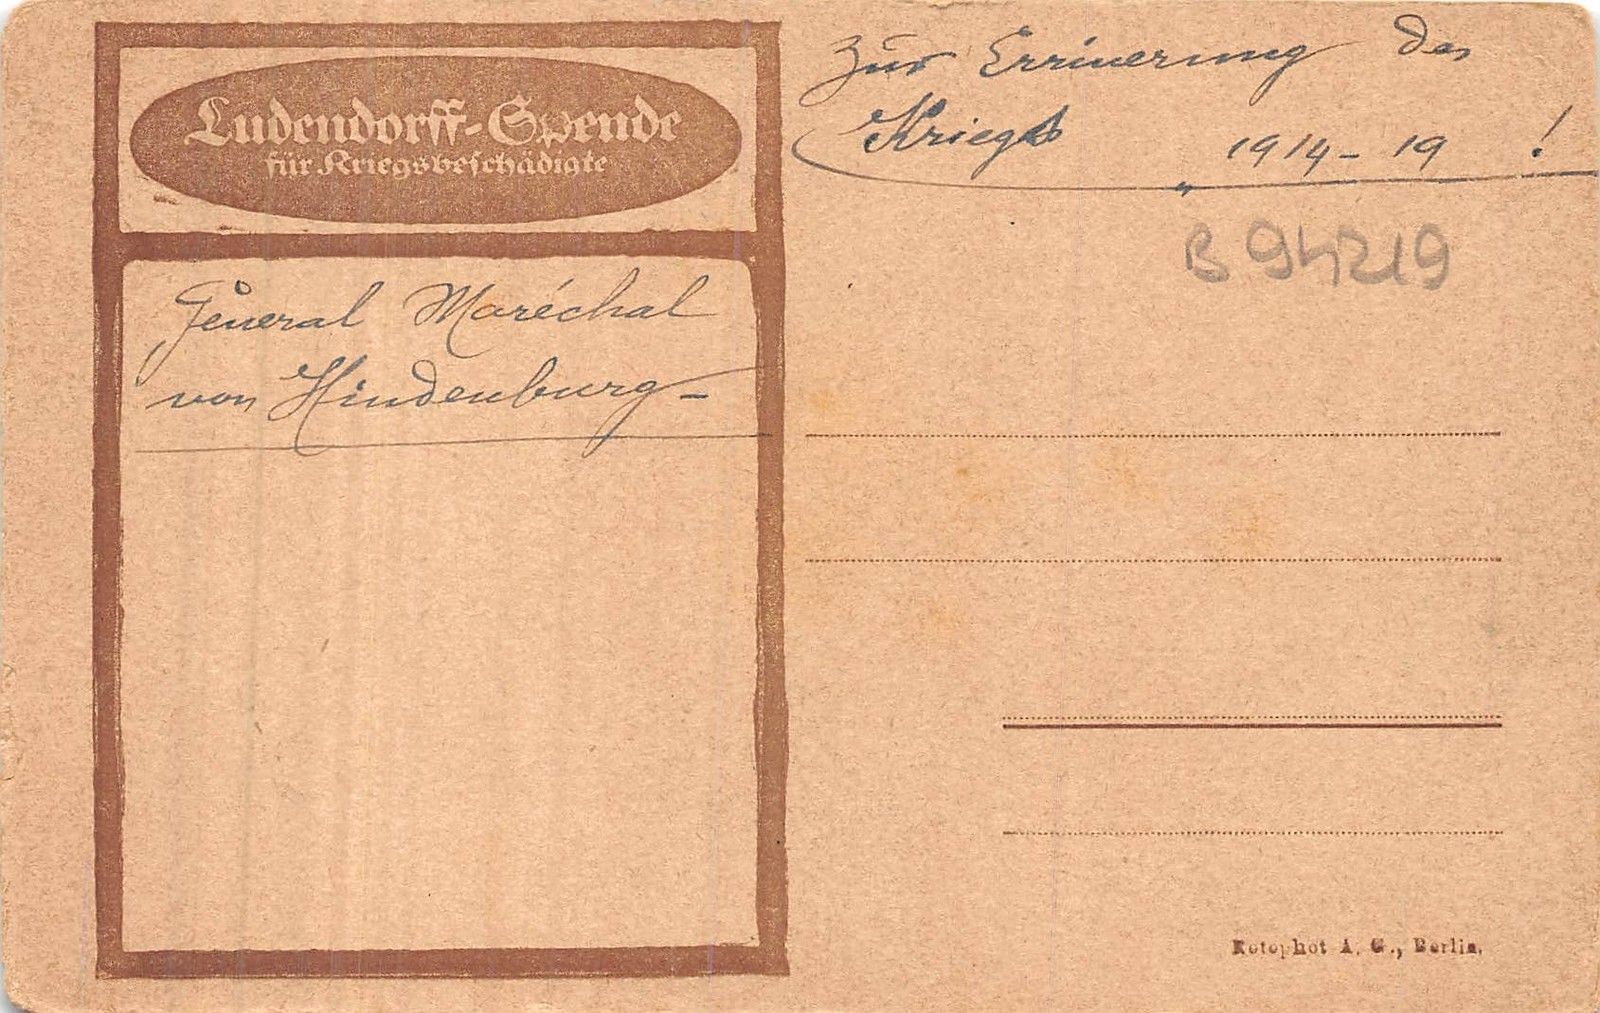 Ludendorff-Spende
für Kriegsbeschädigte
Géneral Maréchal
von Hindenburg -
Zur Errinerung des
Kriegs 1914 - 19 !
B 94219
Rotophot A. G., Berlin.